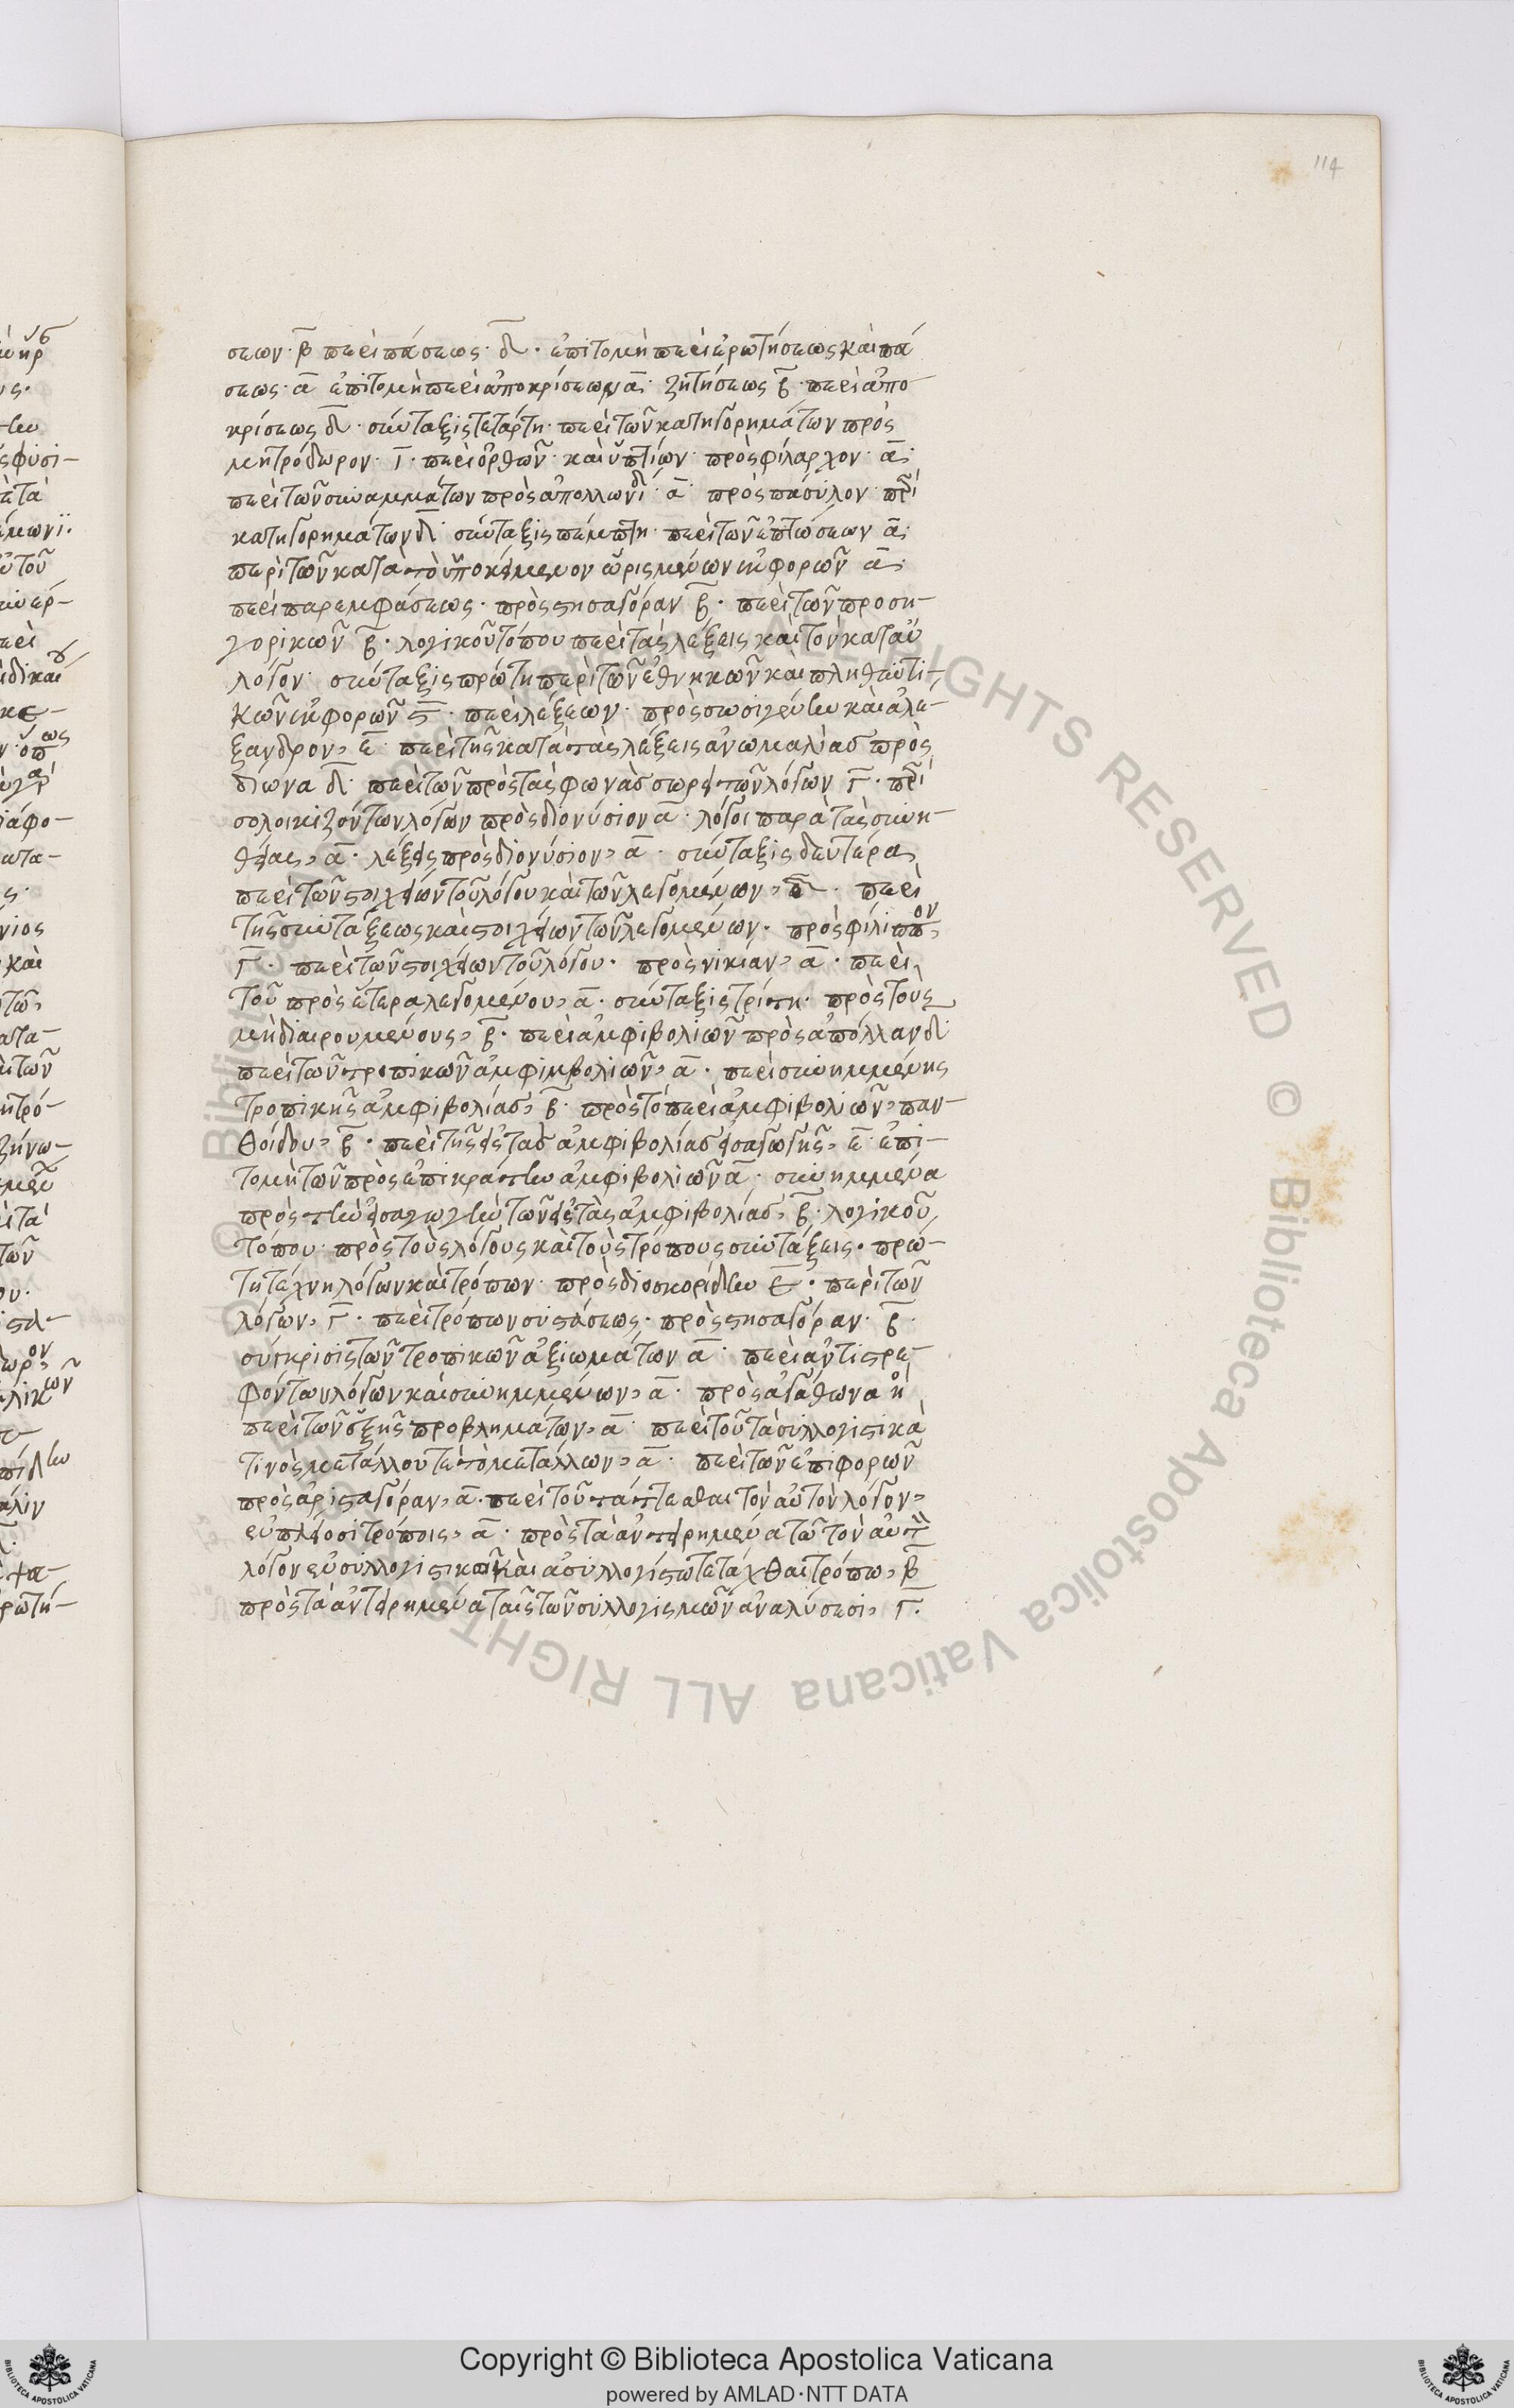 114
σεων· β̅ περὶ πεύσεως· δ̅· ἐπιτομὴ περὶ ἐρωτήσεως καὶ πεύ
σεως· α̅ ἐπιτομὴ περὶ ἀποκρίσεων α̅· ζητήσεως β̅· περὶ ἀπο-
κρίσεως δ̅· σύνταξις τετάρτη· περὶ τῶν κατηγορημάτων πρὸς
μητρόδωρον· ι̅· περὶ ὀρθῶν· καὶ ὑπτίων· πρὸς φίλαρχον· α̅·
περὶ τῶν συναμμάτων πρὸς ἀπολλωνδί· α̅· πρὸς πάσυλον· πρὶ
κατηγορημάτων δ̅· σύνταξις πέμπτη· περὶ τῶν ε πτώσεων α̅·
περὶ τῶν κατὰ τὸ ὑποκείμενον ὡρισμένων ἐκφορῶν α̅·
περὶ παρεμφάσεως· πρὸς στησαγόραν β̅· περὶ τῶν προση-
γορικῶν β̅· λογικοῦ τόπου περὶ τὰς λέξεις καὶ τὸν κατ αὐ
λόγον· σύνταξις πρώτη περὶ τῶν ἐθνηκῶν καὶ πληθυντι-
κῶν ἐκφορῶν ϛ̅· περὶ λέξεων· πρὸς σωσιγένην καὶ ἀλέ-
ξανδρον, ε̅· περὶ τῆς κατὰ τὰς λέξεις ἀνωμαλίας πρὸς
δίωνα δ̅· περὶ τῶν πρὸς τὰς φωνὰς σωρειτῶν λόγων γ̅· πρὶ
σολοικιζόντων λόγων πρὸς διονύσιον α̅· λόγοι παρὰ τὰς συνη-
θείας, α̅· λέξεις πρὸς διονύσιον, α̅· σύνταξις δευτέρα,
περὶ τῶν στοιχείων τοῦ λόγου καὶ τῶν λεγομένων, ε̅· περὶ
τῆς συντάξεως καὶ στοιχείων τῶν λεγομένων· πρὸς φίλιππον,
γ̅· περὶ τῶν στοιχείων τοῦ λόγου· πρὸς νικίαν, α̅· περὶ
τοῦ πρὸς ἕτερα λεγομένου, α̅· σύνταξις τρίτη· πρὸς τοὺς
μὴ διαιρουμένους, β̅· περὶ ἀμφιβολιῶν πρὸς ἀπόλλαν δ̅
περὶ τῶν τροπικῶν ἀμφιμβολιῶν, α̅· περὶ συνημμένης
τροπικῆς ἀμφιβολίας, β̅· πρὸς τὸ περὶ ἀμφιβολιῶν, παν-
θοίδου, β̅· περὶ τῆς εἰς τὰς ἀμφιβολίας εἰσαγωγῆς, ε̅· ἐπι-
τομὴ τῶν πρὸς ἐπικράτην ἀμφιβολιῶν α̅· συνημμένα
πρὸς τὴν εἰσαγωγὴν τῶν εἰς τὰς ἀμφιβολίας, β̅· λογικοῦ
τόπου· πρὸς τοὺς λόγους καὶ τοὺς τρόπους συντάξεις· πρώ-
τη τέχνη λόγων καὶ τρόπων· πρὸς διοσκορίδην ε̅· περὶ τῶν
λόγων, γ̅· περὶ τρόπων συστάσεως· πρὸς στησαγόραν· β̅·
σύγκρισις τῶν τροπικῶν ἀξιωμάτων α̅· περὶ ἀντιστρε-
φόντων λόγων καὶ συνημμένων, α̅· πρὸς ἀγάθωνα ἢ
περὶ τῶν ἑξῆς προβλημάτων, α̅· περὶ τοῦ τὰ συλλογιστικὰ
τινὸς μετ ἄλλου τέ τὸ μετ άλλων, α̅· περὶ τῶν ἐπιφορῶν
πρὸς ἀρισταγόραν, α̅· περὶ τοῦ τάττεσθαι τὸν αὐτὸν λόγον,
ἐν πλείοσι τρόποις, α̅· πρὸς τὰ ἀντειρημένα τῶ τὸν αὐτὸν
λόγον ἐν συλλογιστικῶ καὶ ἀσυλλογίστω τετάχθαι τρόπω, β̅
πρὸς τὰ ἀντειρημένα ταῖς τῶν συλλογισμῶν ἀναλύσεσι, γ̅·
Copyright © Biblioteca Apostolica Vaticana
powered by AMLAD·NTT DATA